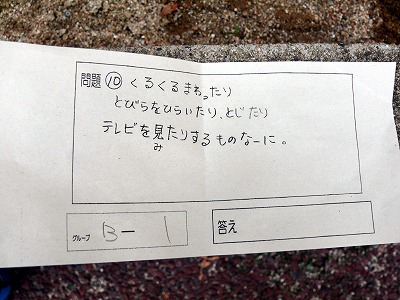 問題 ⑩ くるくるまわったり
とびらをひらいたり、とじたり
テレビを見たりするものなーに。
み
グループ B－1
答え